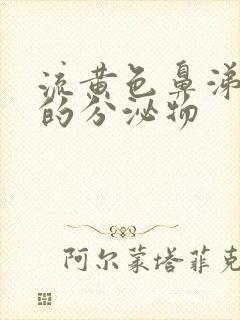 流黄色鼻涕
的分泌物
阿尔蒙塔菲克